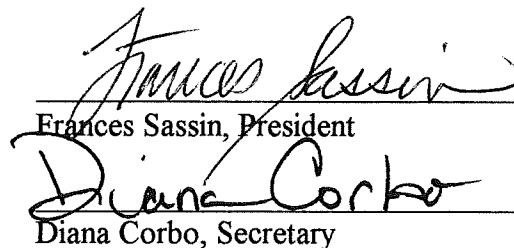 Frances Sassin
Frances Sassin, President
Diana Corbo
Diana Corbo, Secretary